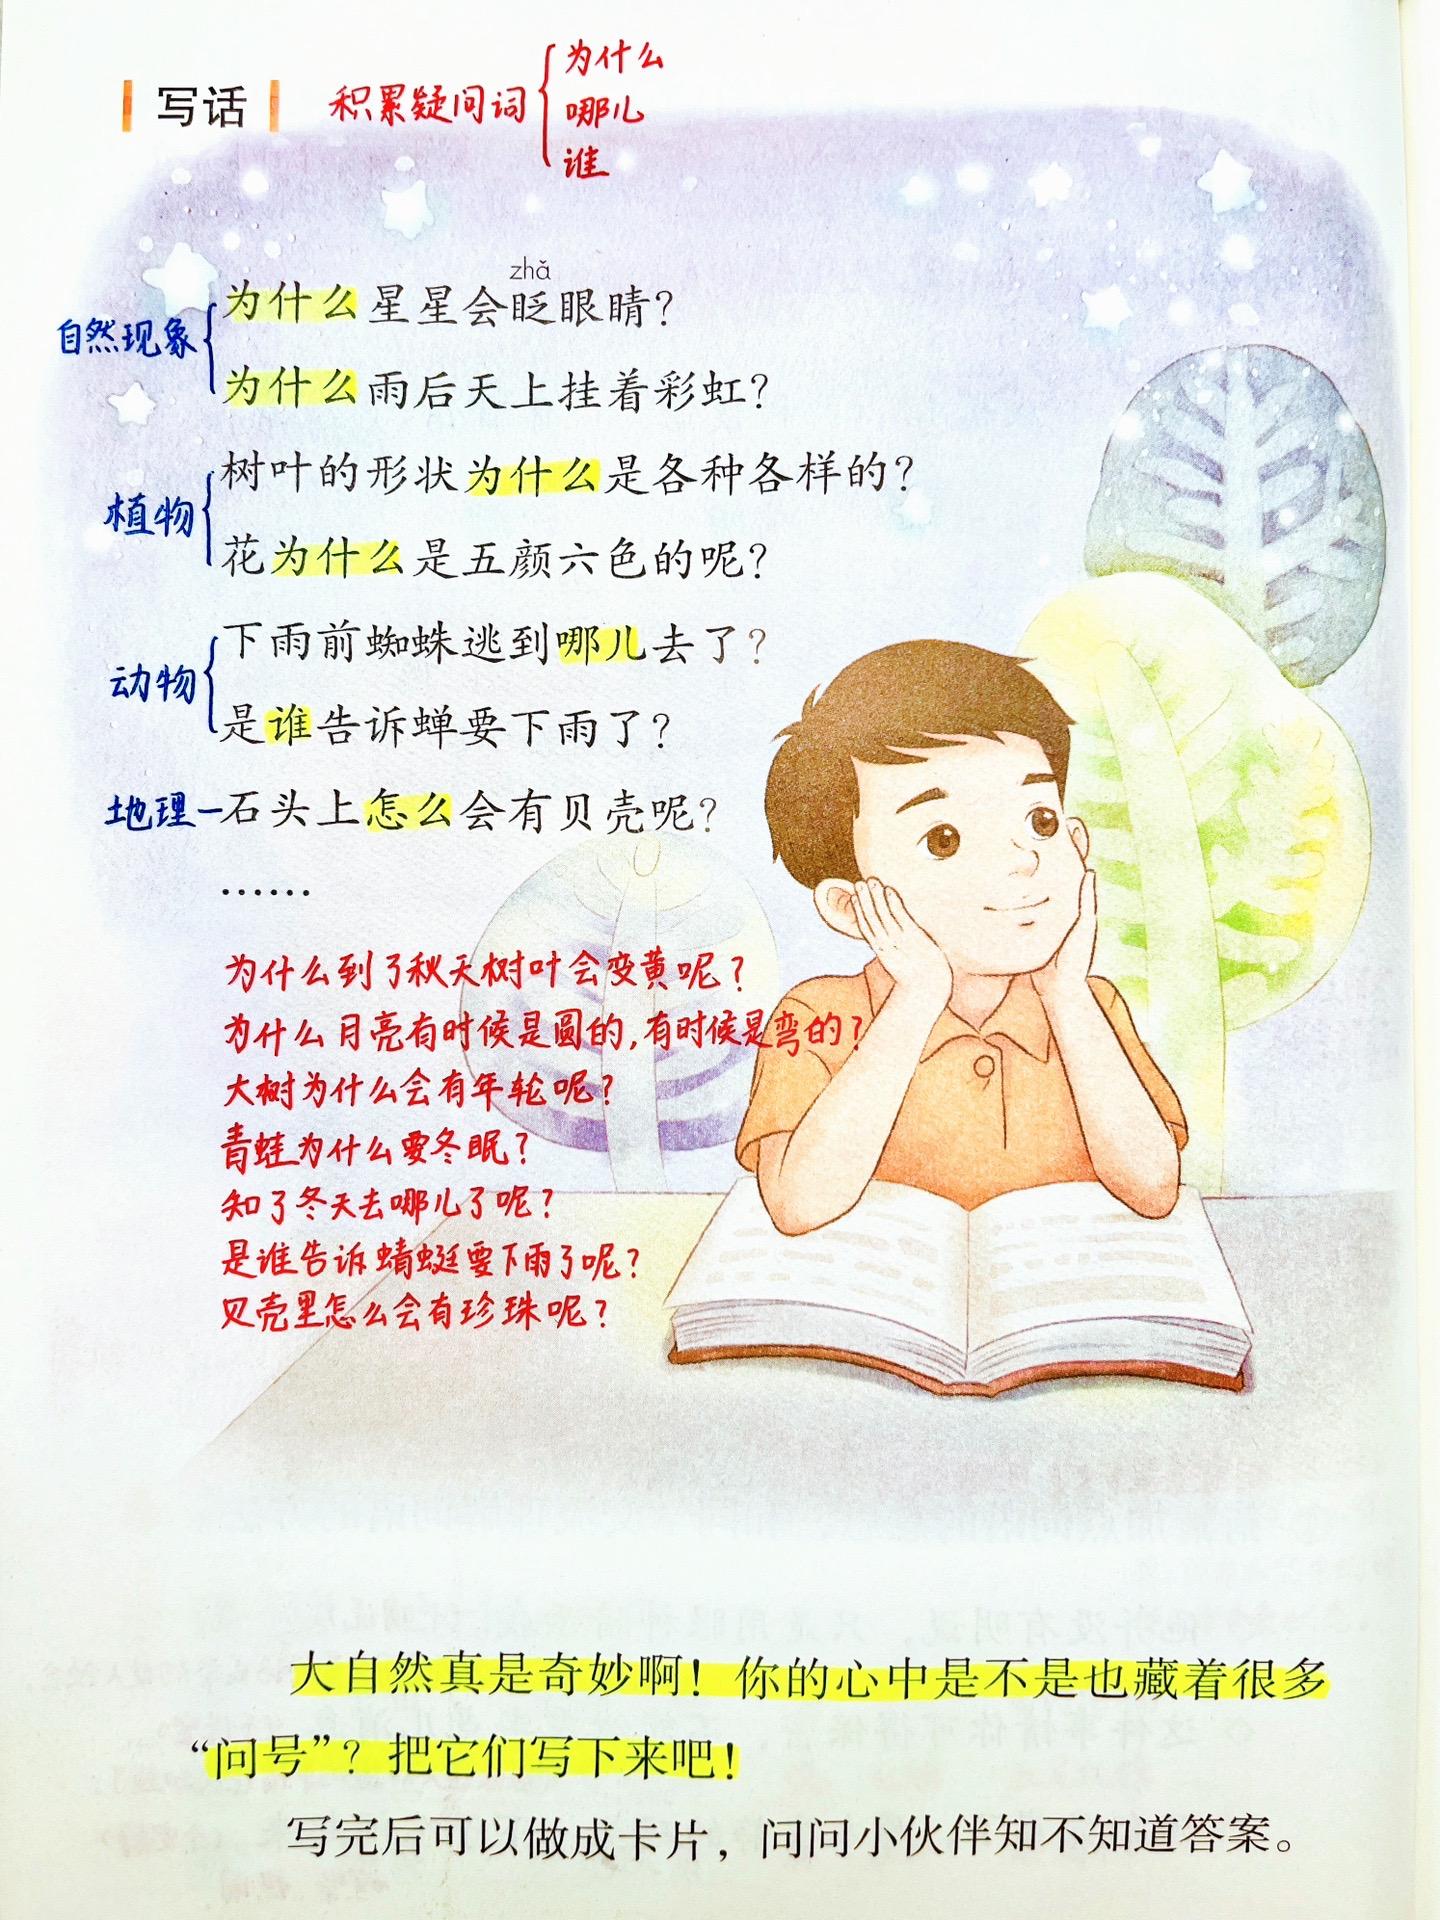 写话
积累疑问词
为什么
哪儿
谁
zhǎ
为什么星星会眨眼睛？
为什么雨后天上挂着彩虹？
自然现象
树叶的形状为什么是各种各样的？
花为什么是五颜六色的呢？
植物
下雨前蜘蛛逃到哪儿去了？
是谁告诉蝉要下雨了？
动物
地理 石头上怎么会有贝壳呢？
……
为什么到了秋天树叶会变黄呢？
为什么月亮有时候是圆的，有时候是弯的？
大树为什么会有年轮呢？
青蛙为什么要冬眠？
知了冬天去哪儿了呢？
是谁告诉蜻蜓要下雨了呢？
贝壳里怎么会有珍珠呢？
大自然真是奇妙啊！你的心中是不是也藏着很多
“问号”？把它们写下来吧！
写完后可以做成卡片，问问小伙伴知不知道答案。